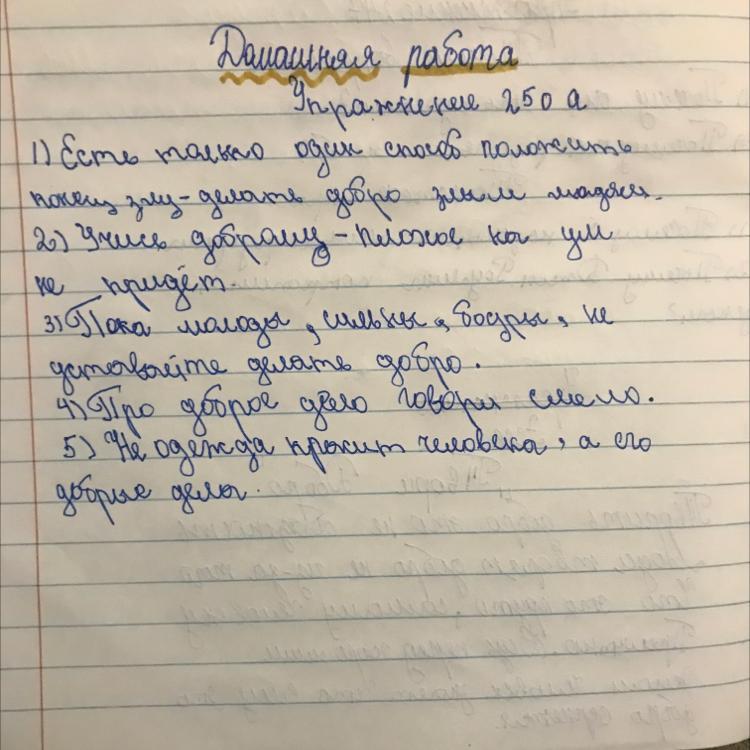 Домашняя работа
Упражнение 250 а
1) Есть только один способ положить
конец злу - делать добро злым людям.
2) Учись доброму - плохое на ум
не придёт.
3) Пока молоды, сильны, бодры, не
уставайте делать добро.
4) Про доброе дело говори смело.
5) Не одежда красит человека, а его
добрые дела.